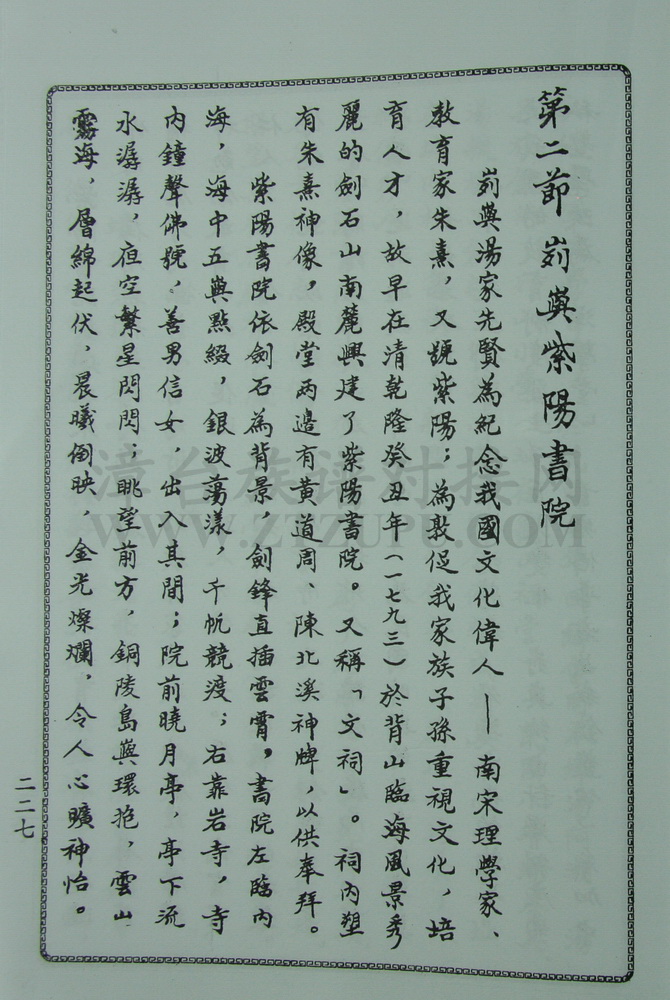 第二節 峛嶼紫陽書院
峛嶼湯家先賢為紀念我國文化偉人——南宋理學家、
教育家朱熹，又號紫陽；為敦促我家族子孫重視文化，培
育人才，故早在清乾隆癸丑年（一七九三）於背山臨海風景秀
麗的劍石山南麓興建了紫陽書院。又稱「文祠」。祠內塑
有朱熹神像，殿堂兩邊有黃道周、陳北溪神牌，以供奉拜。
紫陽書院依劍石為背景，劍鋒直插雲霄，書院左臨內
海，海中五嶼點綴，銀波蕩漾，千帆競渡；右靠岩寺，寺
內鐘聲佛號，善男信女，出入其間；院前曉月亭，亭下流
水潺潺，夜空繁星閃閃；眺望前方，銅陵島嶼環抱，雲山
霧海，層綿起伏，晨曦倒映，金光燦爛，令人心曠神怡。
二二七
漳台族谱对接网
WWW.ZTZUPU.COM